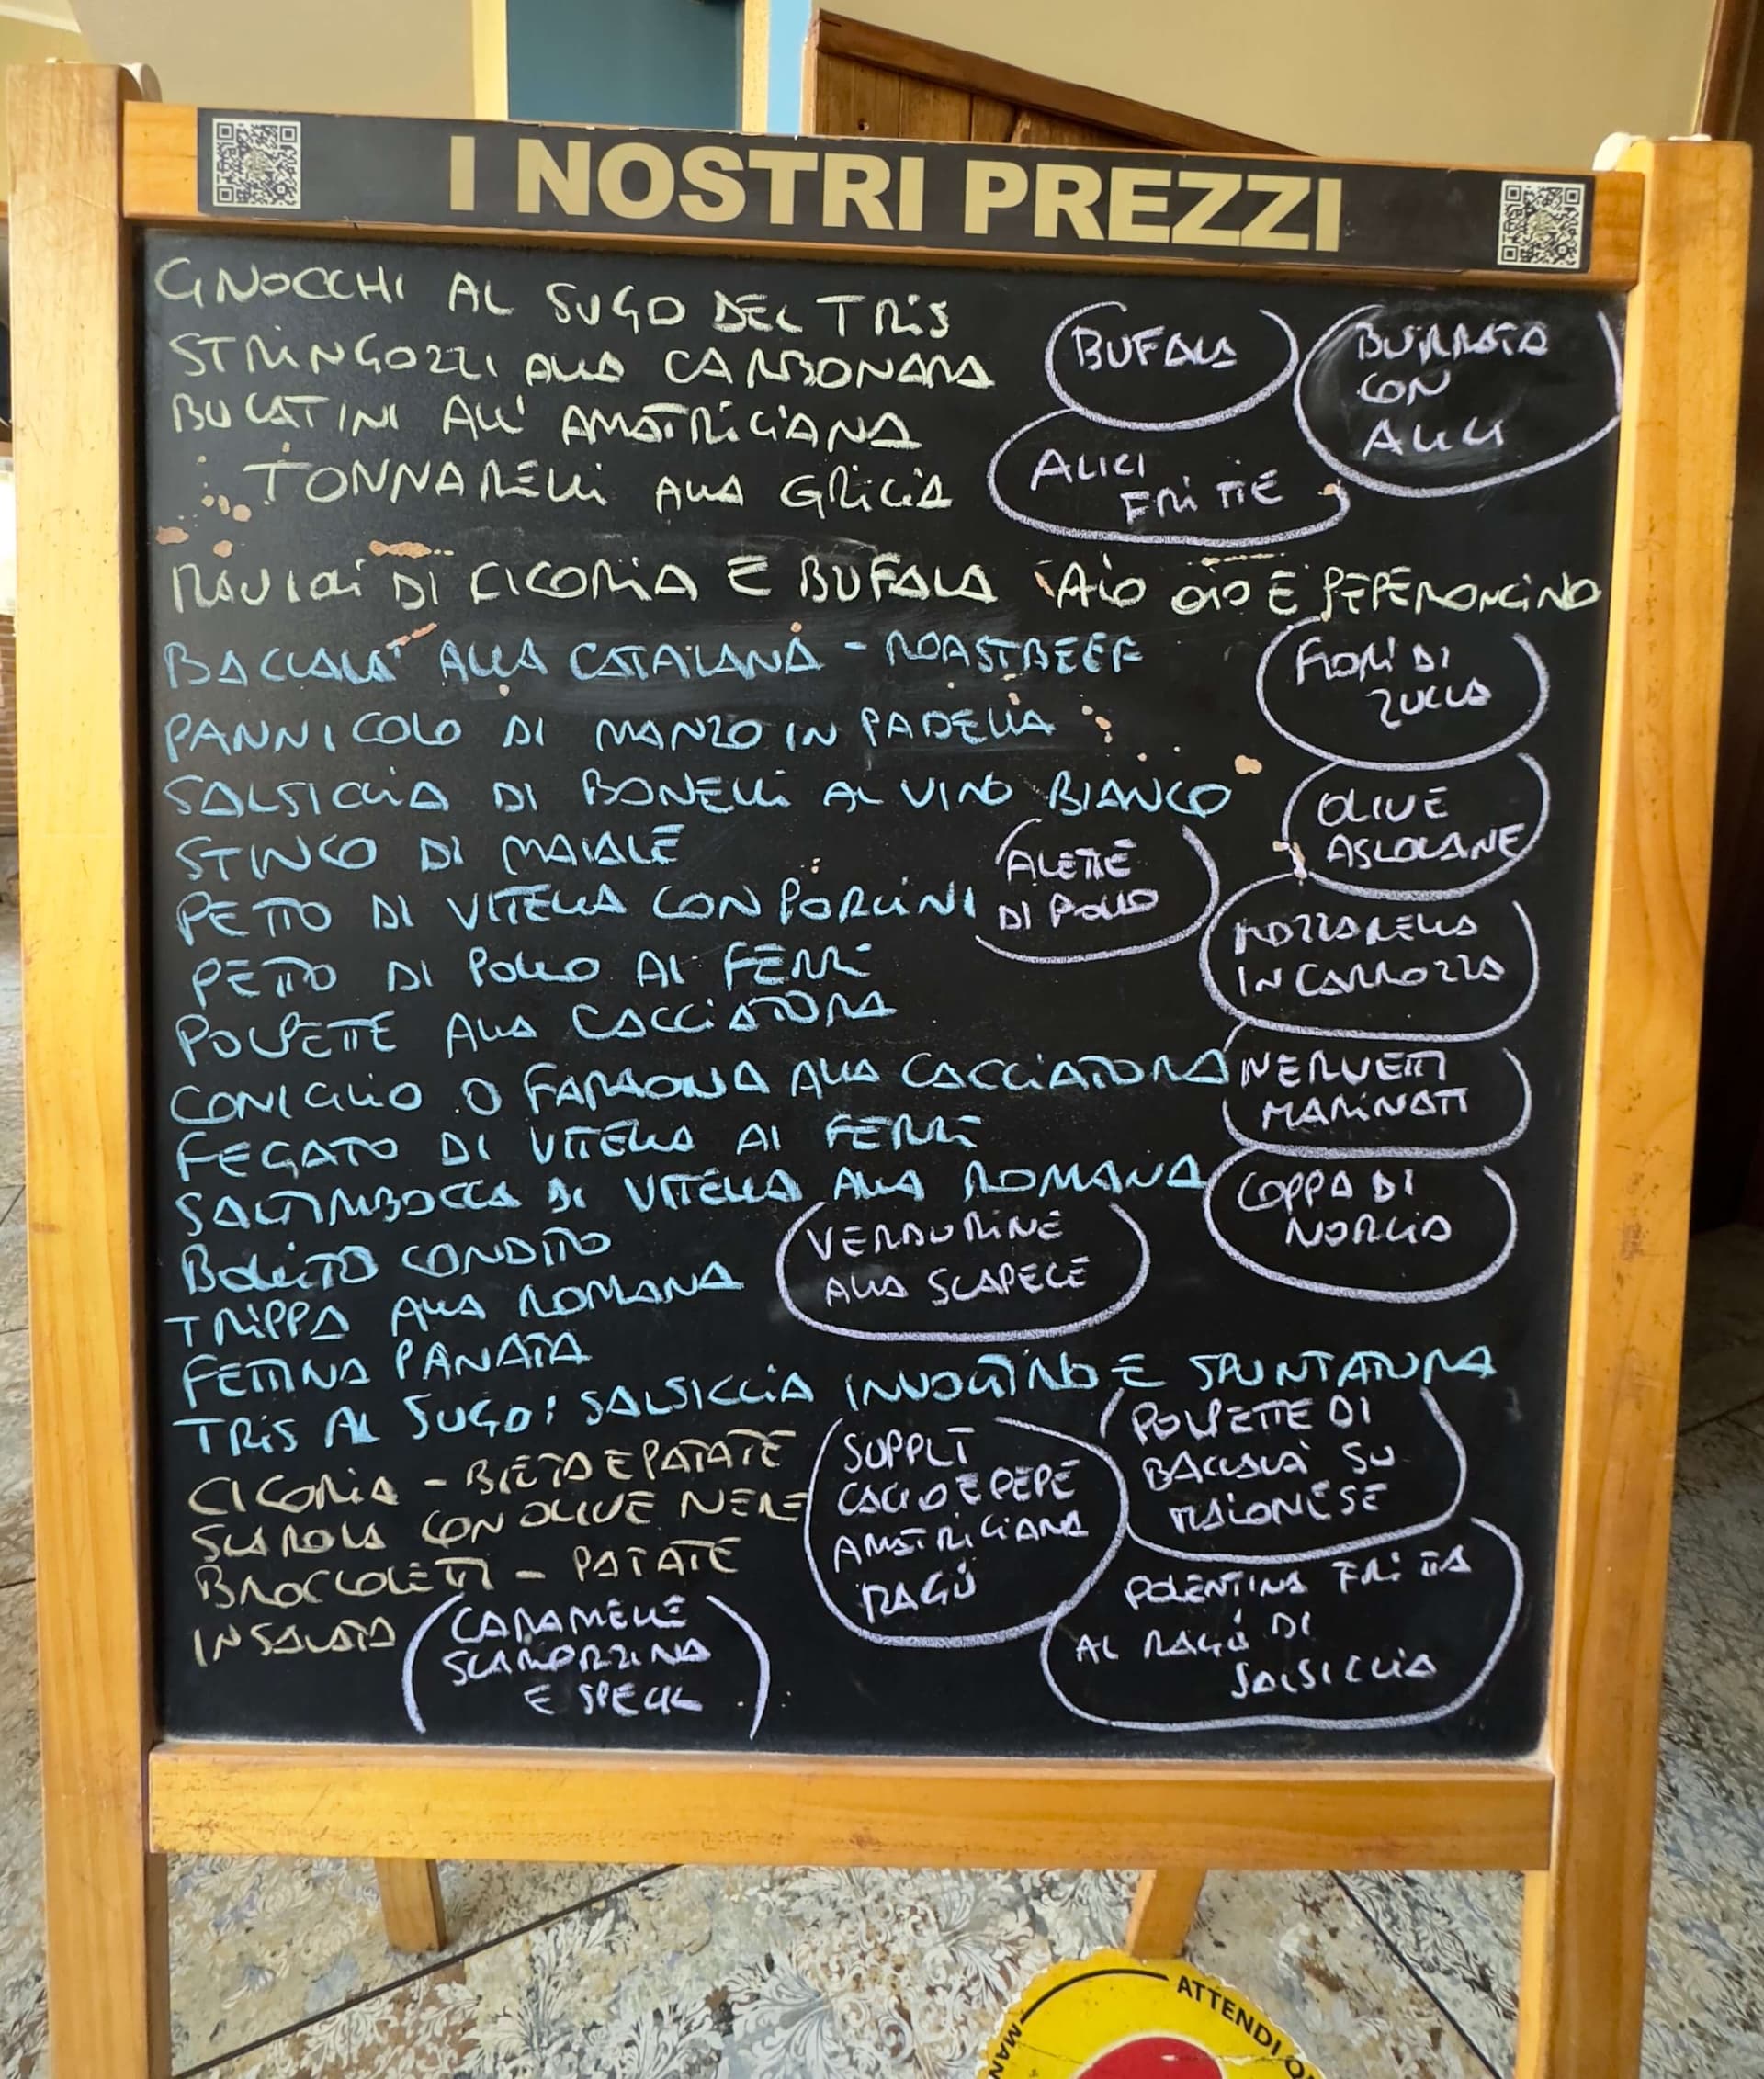 I NOSTRI PREZZI
GNOCCHI AL SUGO DEL TRIS
STRINGOZZI ALLA CARBONARA
BUCATINI ALL' AMATRICIANA
TONNARELLI ALLA GRICIA
BUFALA
BURRATA
CON
ALICI
ALICI
FRITTE
RAVIOLI DI CICORIA E BUFALA AIO OIO E PEPERONCINO
BACCALA' ALLA CATALANA - ROASTBEEF
PANNICOLO DI MANZO IN PADELLA
SALSICCIA DI BONELLI AL VINO BIANCO
STINCO DI MAIALE
PETTO DI VITELLA CON PORCINI
PETTO DI POLLO AI FERRI
POLPETTE ALLA CACCIATORA
CONIGLIO O FARAONA ALLA CACCIATORA
FEGATO DI VITELLA AI FERRI
SALTIMBOCCA DI VITELLA ALLA ROMANA
BOLLITO CONDITO
TRIPPA ALLA ROMANA
FETTINA PANATA
TRIS AL SUGO: SALSICCIA INVOLTINO E SPUNTATURA
FIORI DI
ZUCCA
OLIVE
ASCOLANE
ALETTE
DI POLLO
MOZZARELLA
IN CARROZZA
NERVETTI
MARINATI
COPPA DI
NORCIA
VERDURINE
ALLA SCAPECE
CICORIA - BIETA E PATATE
SCAROLA CON OLIVE NERE
BROCCOLETTI - PATATE
INSALATA
CARAMELLE
SCAMORZINA
E SPECK
SUPPLI
CACIO E PEPE
AMATRICIANA
RAGÙ
POLPETTE DI
BACCALÀ SU
MAIONESE
POLENTINA FRITTA
AL RAGÙ DI
SALSICCIA
ATTENDI
MAN